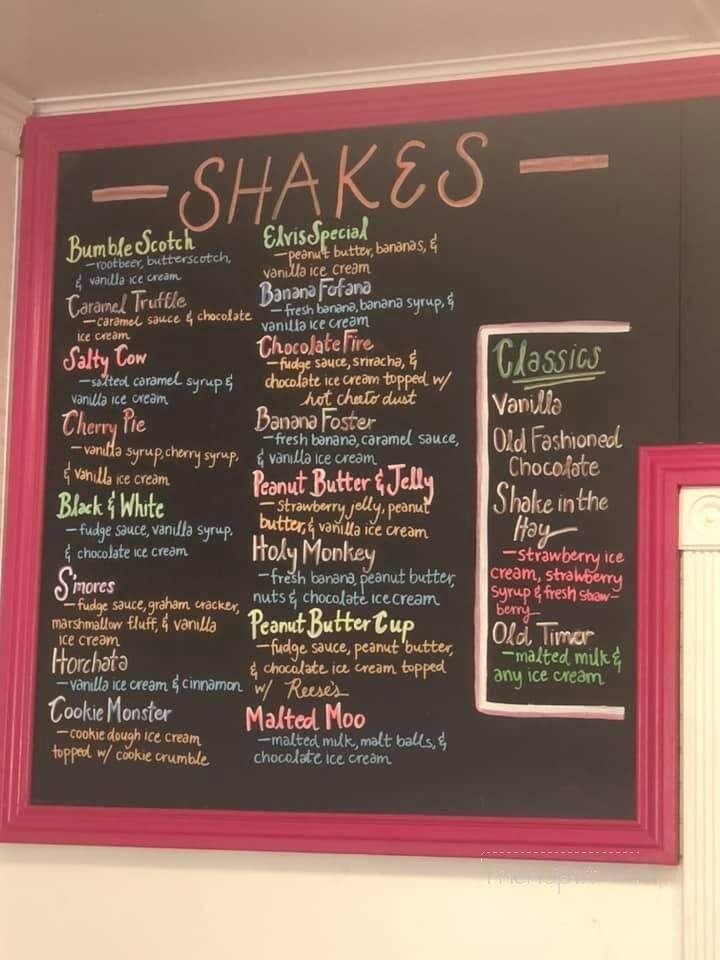 SHAKES
Bumble Scotch
—rootbeer, butterscotch,
& vanilla ice cream
Caramel Truffle
—caramel sauce & chocolate
ice cream
Salty Cow
—salted caramel syrup &
vanilla ice cream
Cherry Pie
—vanilla syrup, cherry syrup,
& vanilla ice cream
Black & White
—fudge sauce, vanilla syrup,
& chocolate ice cream
S'mores
—fudge sauce, graham cracker,
marshmallow fluff, & vanilla
ice cream
Horchata
—vanilla ice cream & cinnamon
Cookie Monster
—cookie dough ice cream
topped w/ cookie crumble
Elvis Special
—peanut butter, bananas, &
vanilla ice cream
Banana Fofana
—fresh banana, banana syrup, &
vanilla ice cream
Chocolate Fire
—fudge sauce, sriracha, &
chocolate ice cream topped w/
hot cheeto dust
Banana Foster
—fresh banana, caramel sauce,
& vanilla ice cream
Peanut Butter & Jelly
—strawberry jelly, peanut
butter, & vanilla ice cream
Holy Monkey
—fresh banana, peanut butter,
nuts & chocolate ice cream
Peanut Butter Cup
—fudge sauce, peanut butter,
& chocolate ice cream topped
w/ Reese's
Malted Moo
—malted milk, malt balls, &
chocolate ice cream
Classics
Vanilla
Old Fashioned
Chocolate
Shake in the
Hay
—strawberry ice
cream, strawberry
syrup & fresh straw-
berry
Old Timer
—malted milk &
any ice cream